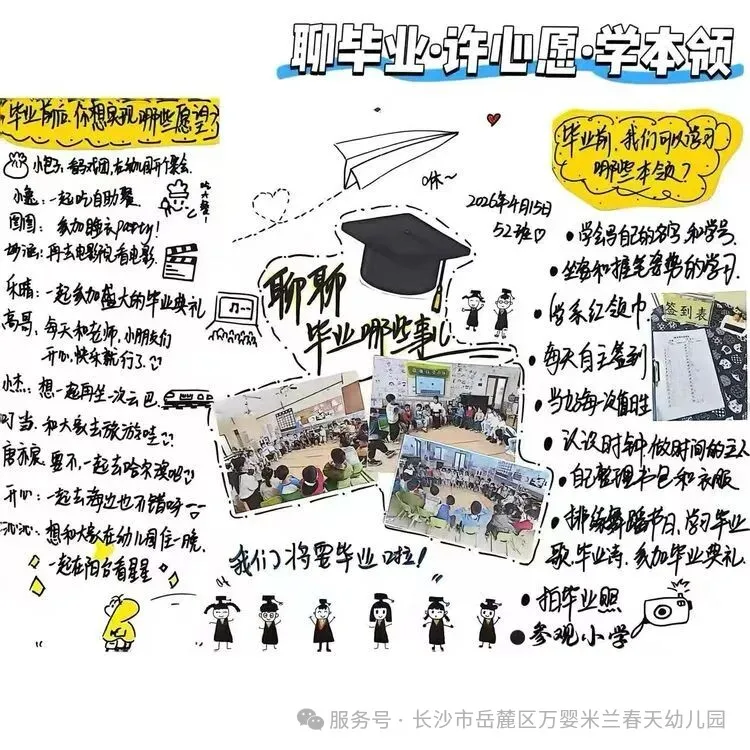 聊毕业·许心愿·学本领
毕业前后,你想实现哪些愿望?
一起吃自助餐
圆圆:参加睡衣party!
再去电影院看电影
乐晴:一起参加盛大的毕业典礼
高哥:每天和老师,小朋友们
开心,快乐就行了
小杰:想一起再坐一次云巴
叮当:和大家去旅游哇
唐亦宸:要不,一起去哈尔滨吧
开心:一起去海边也不错呀
沁沁:想和大家在幼儿园住一晚,
一起在阳台看星星
咻~
2026年4月15日
52班
聊聊
毕业哪些事儿
我们将要毕业啦!
毕业前,我们可以学习
哪些本领?
学会写自己的名字和学号
坐姿和握笔姿势的学习
学系红领巾
每天自主签到
当好每一次值日生
认识时钟,做时间的主人
自己整理书包和衣服
排练舞蹈节目,学习毕业
歌,毕业诗,参加毕业典礼
拍毕业照
参观小学
签到表
服务号·长沙市岳麓区万婴米兰春天幼儿园